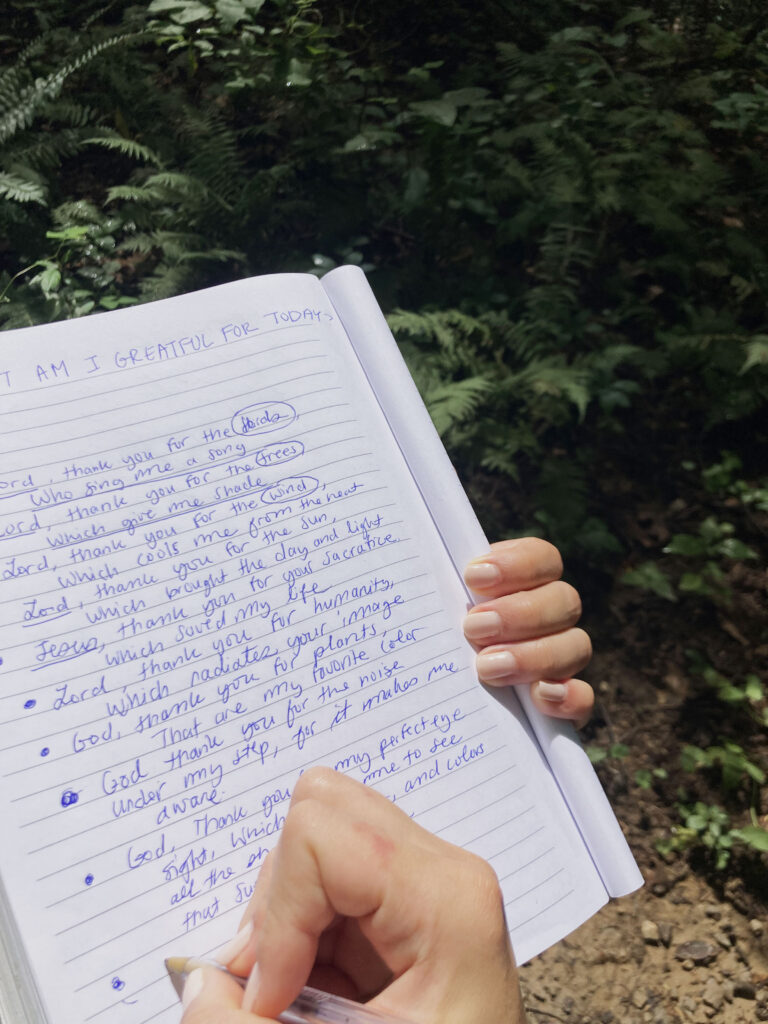 T AM I GREATFUL FOR TODAY?
ord, thank you for the birds,
who sing me a song
Lord, thank you for the trees
which give me shade
Lord, thank you for the wind,
which cools me from the heat
Lord, thank you for the sun,
which brought the day and light
Jesus, thank you for your sacrafice
which saved my life
Lord, thank you for humanity,
which radiates your image
God, thank you for plants,
That are my favorite color
God thank you for the noise
under my step, for it makes me
aware.
God, Thank you my perfect eye
sight, which me to see
all the , and colors
that